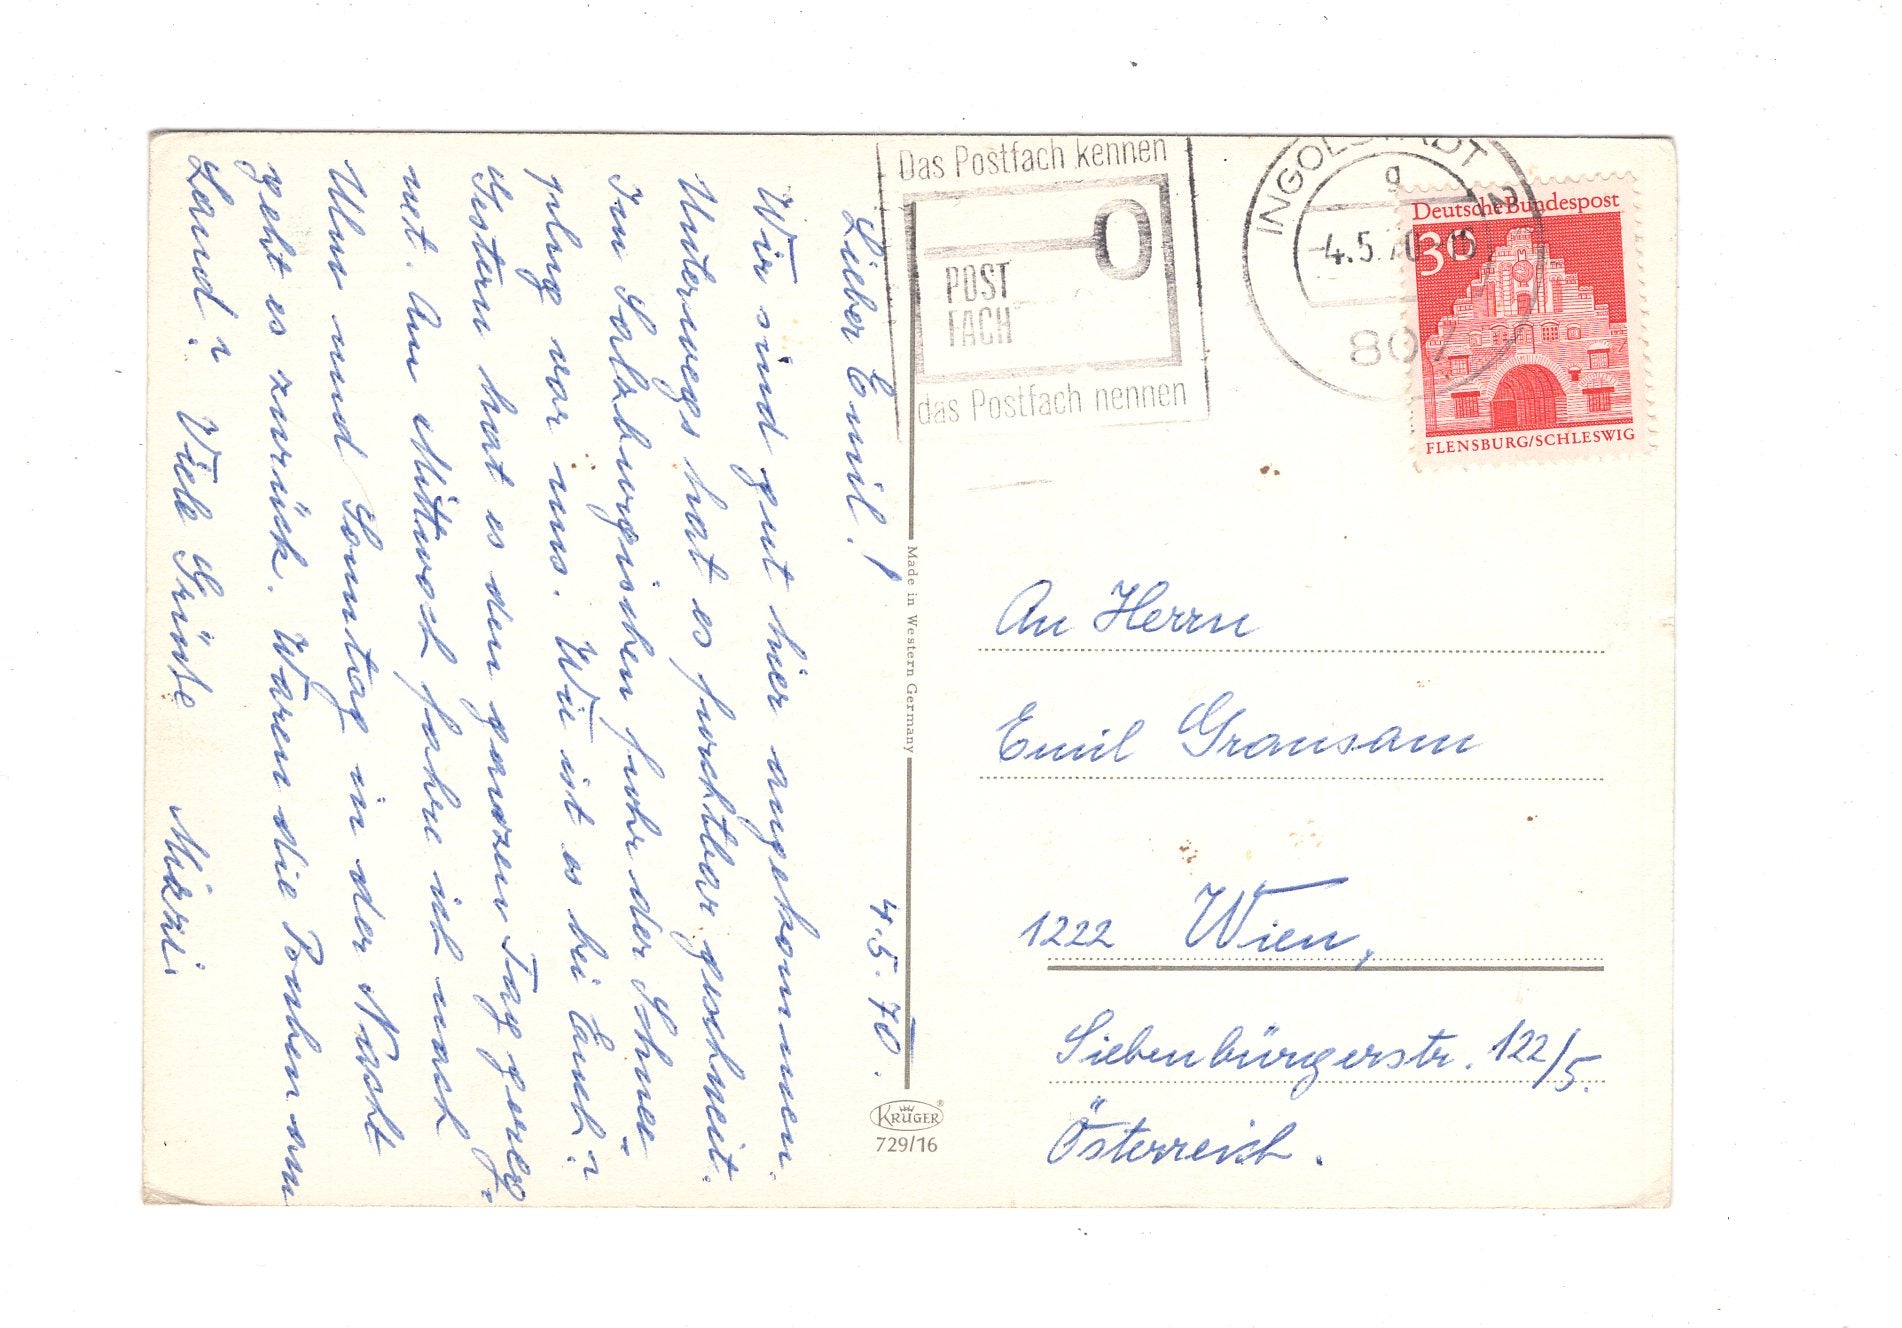 Lieber Emil! 4.5.70.
Wir sind gut hier angekommen.
Unterwegs hat es furchtbar geschneit.
Im Salzburgischen fuhr der Schnee-
pflug vor uns. Wie ist es bei Euch?
Gestern hat es den ganzen Tag gereg-
net. Am Mittwoch fahre ich nach
Ulm und Sonntag in der Nacht
geht es zurück. Waren die Poxben am
Land? Viele Grüße Mizzi.
Made in Western Germany
KRÜGER®
729/16
Das Postfach kennen
POST
FACH
das Postfach nennen
INGOLSTADT
g
-4.5.70
807
Deutsche Bundespost
30
FLENSBURG/SCHLESWIG
An Herrn
Emil Gransam
1222 Wien,
Siebenbürgerstr. 122/5.
Österreich.